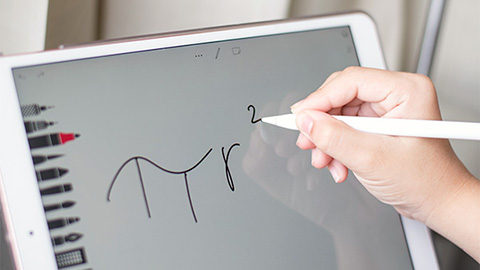 πr²